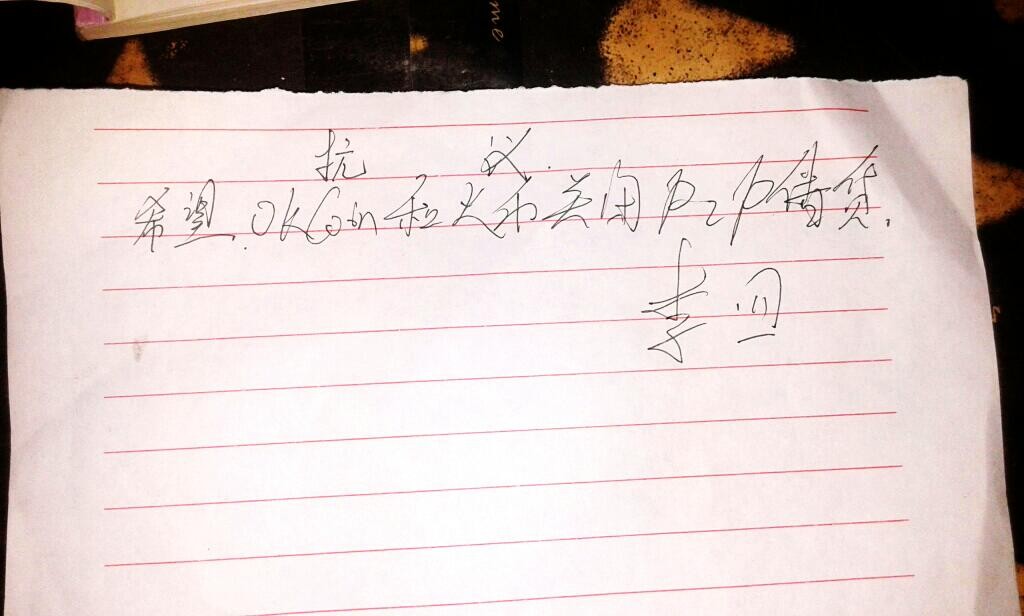 me
抗 议.
希望.OKCoin和火币关闭P2P借贷.
李四